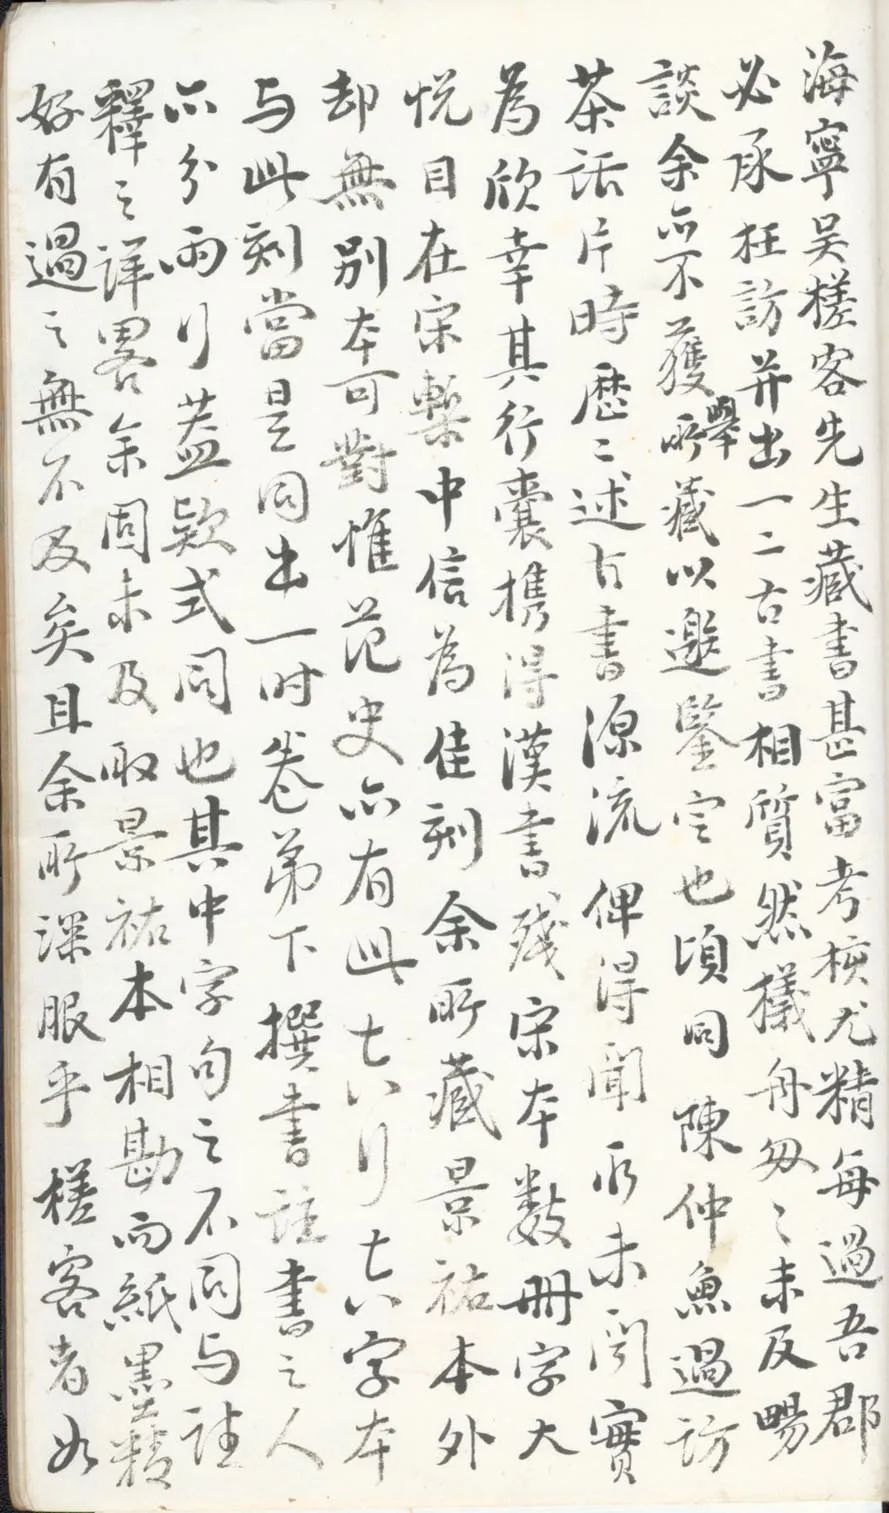 海寧吴槎客先生藏書甚富考核尤精每過吾郡
必承枉訪并出一二古書相質然檥舟匆〻未及暢
談余亦不獲舉所藏以邀鑒定也頃同陳仲魚過訪
茶話片時歷〻述古書源流俾得聞所未聞實
為欣幸其行囊携得漢書殘宋本數冊字大
悦目在宋槧中信為佳刻余所藏景祐本外
却無别本可對惟范史亦有此十六行十六字本
与此刻當是同出一时卷第下撰書註書之人
亦分兩行葢款式同也其中字句之不同与註
釋之詳畧余固未及取景祐本相勘而紙墨精
好有過之無不及矣且余所深服乎槎客者如